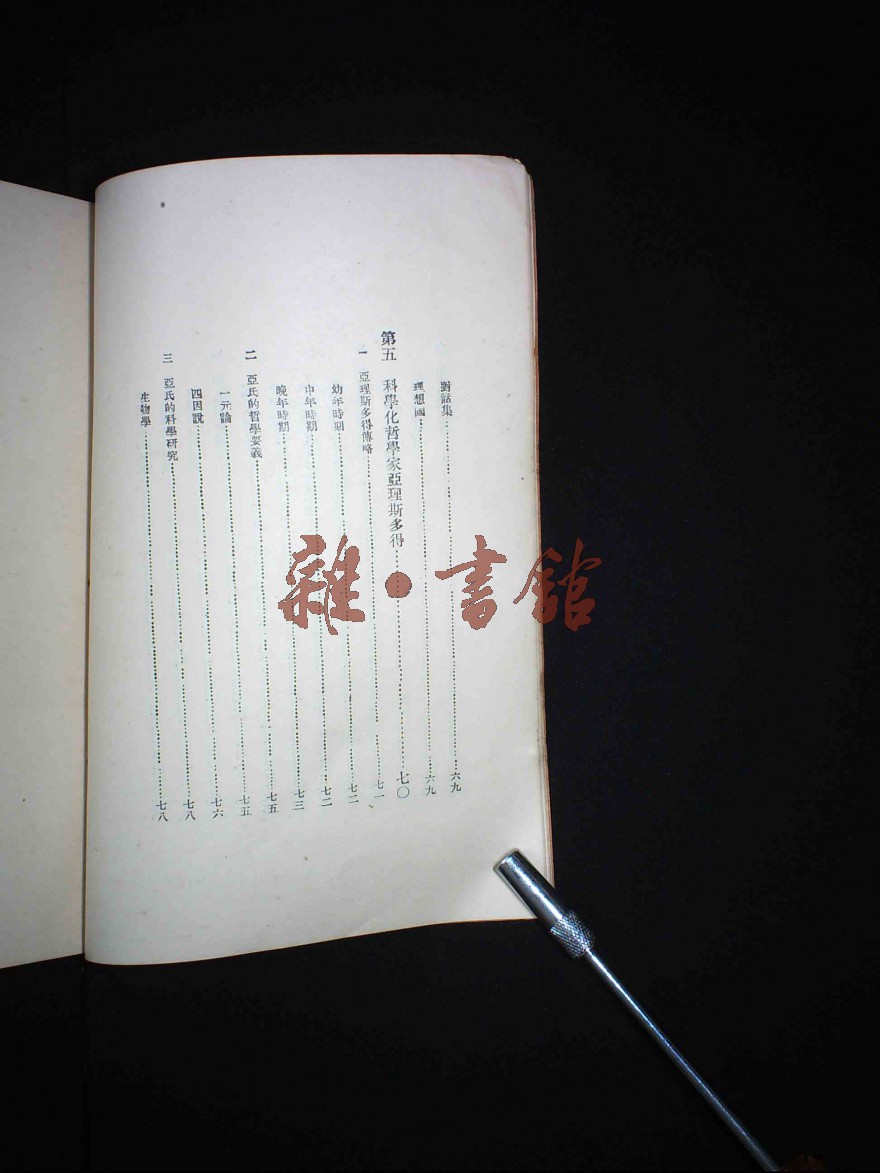 對話集……六九
理想國……六九
第五 科學化哲學家亞理斯多得……七〇
一 亞理斯多得傳略……七一
幼年時期……七二
中年時期……七二
晚年時期……七三
二 亞氏的哲學要義……七五
一元論……七五
四因說……七六
三 亞氏的科學研究……七八
生物學……七八
雜·書館